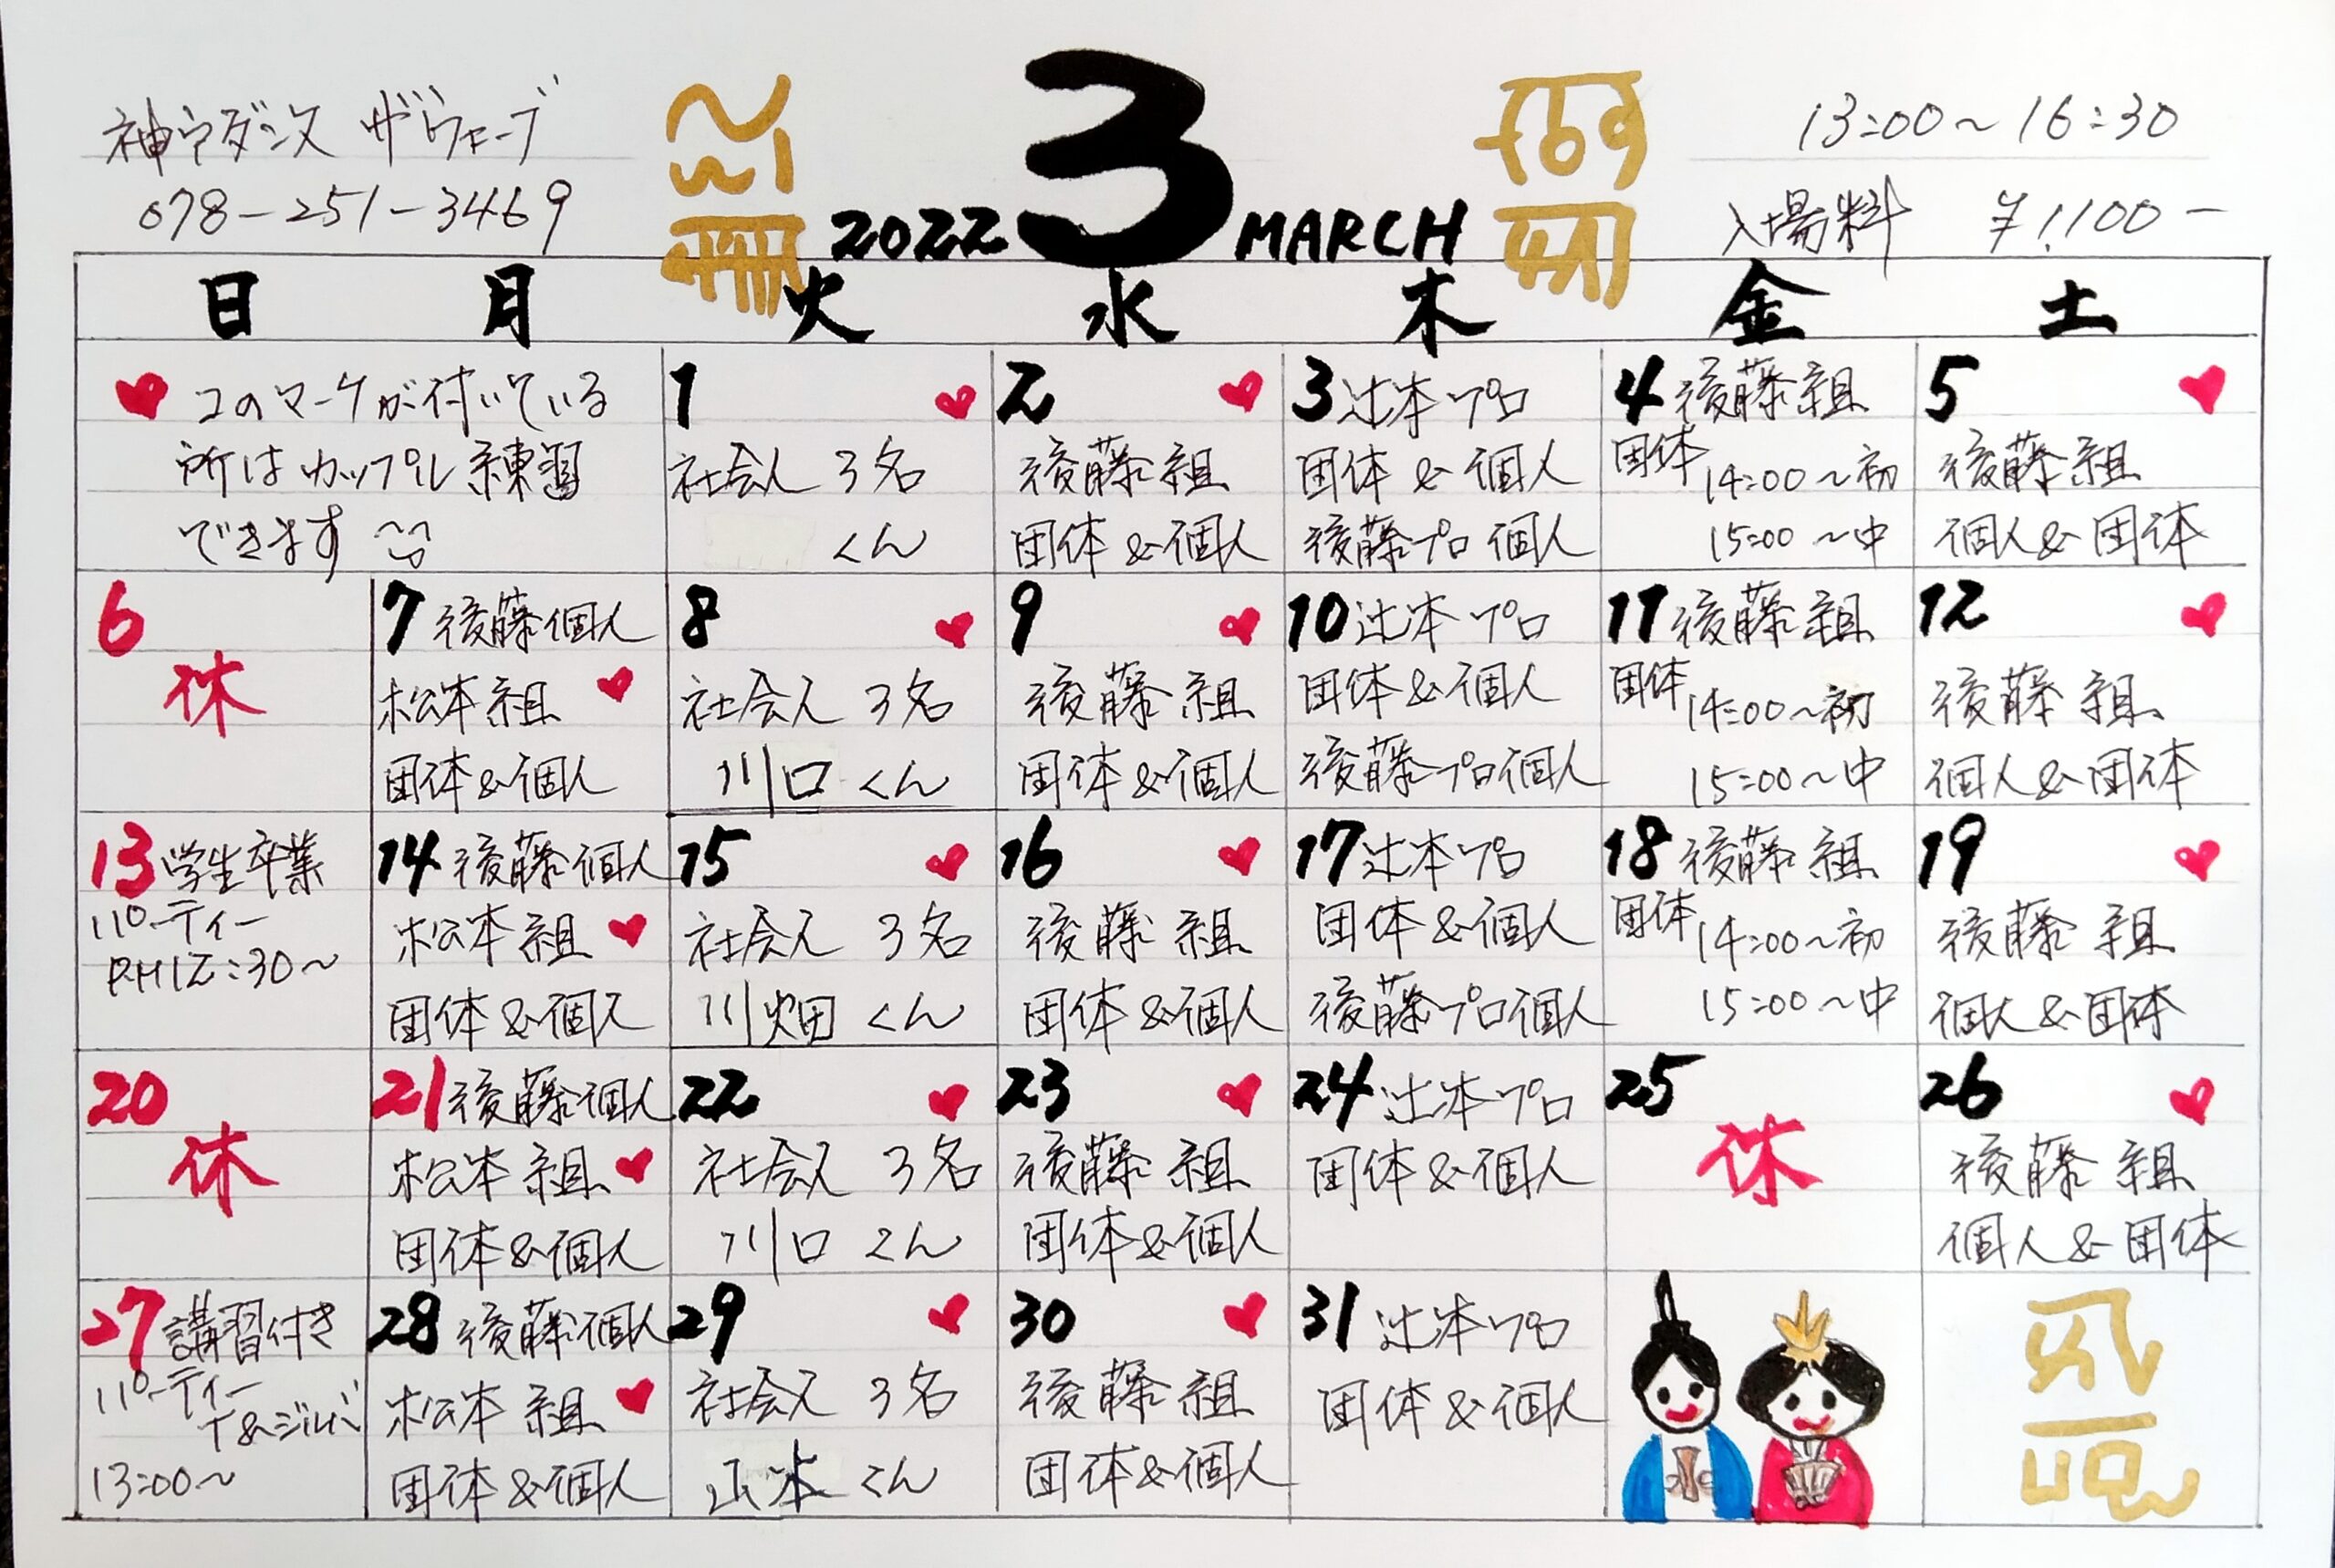 神戸ダンス ザウェーブ
078-251-3469
2022 3 MARCH
13:00～16:30
入場料 ¥1,100-
日 月 火 水 木 金 土
♥ このマークが付いている
所はカップル練習
できます
1 ♥
社会人 3名
くん
2 ♥
後藤組
団体&個人
3 辻本プロ
団体&個人
後藤プロ個人
4 後藤組
団体 14:00～初
15:00～中
5 ♥
後藤組
個人&団体
6
休
7 後藤個人
松本組 ♥
団体&個人
8 ♥
社会人 3名
川口くん
9 ♥
後藤組
団体&個人
10 辻本プロ
団体&個人
後藤プロ個人
11 後藤組
団体 14:00～初
15:00～中
12 ♥
後藤組
個人&団体
13 学生卒業
パーティー
PM12:30～
14 後藤個人
松本組 ♥
団体&個人
15 ♥
社会人 3名
川畑くん
16 ♥
後藤組
団体&個人
17 辻本プロ
団体&個人
後藤プロ個人
18 後藤組
団体 14:00～初
15:00～中
19 ♥
後藤組
個人&団体
20
休
21 後藤個人
松本組 ♥
団体&個人
22 ♥
社会人 3名
川口くん
23 ♥
後藤組
団体&個人
24 辻本プロ
団体&個人
25
休
26 ♥
後藤組
個人&団体
27 講習付き
パーティー
T&ジルバ
13:00～
28 後藤個人
松本組 ♥
団体&個人
29 ♥
社会人 3名
山本くん
30 ♥
後藤組
団体&個人
31 辻本プロ
団体&個人